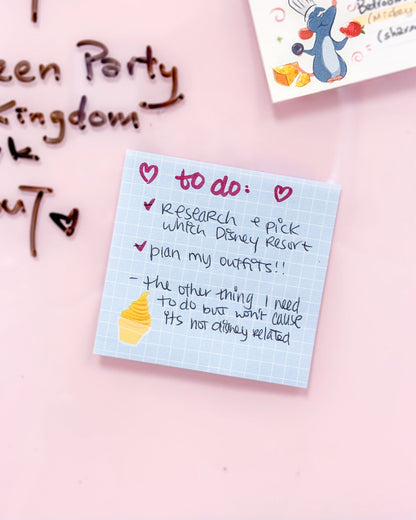 een Party
Kingdom
k.
Bedroom
(Mickey
(shar
to do:
Research + pick
which Disney Resort
plan my outfits!!
- the other thing I need
to do but won't cause
it's not disney related